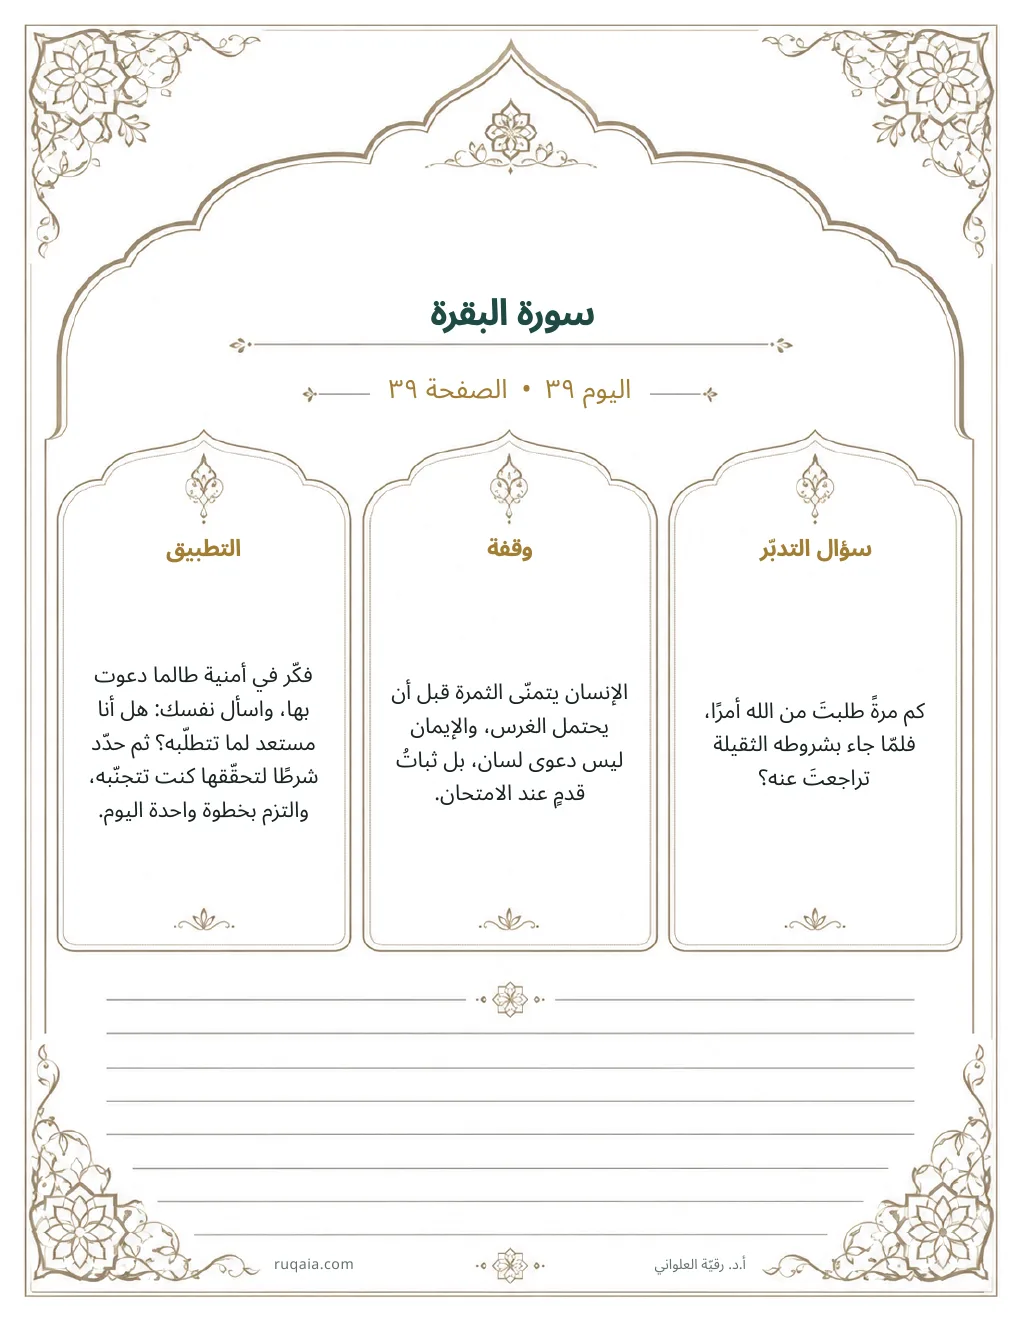 سورة البقرة
اليوم ٣٩ • الصفحة ٣٩
سؤال التدبّر
كم مرةً طلبتَ من الله أمرًا،
فلمّا جاء بشروطه الثقيلة
تراجعتَ عنه؟
وقفة
الإنسان يتمنّى الثمرة قبل أن
يحتمل الغرس، والإيمان
ليس دعوى لسان، بل ثباتُ
قدمٍ عند الامتحان.
التطبيق
فكّر في أمنية طالما دعوت
بها، واسأل نفسك: هل أنا
مستعد لما تتطلّبه؟ ثم حدّد
شرطًا لتحقّقها كنت تتجنّبه،
والتزم بخطوة واحدة اليوم.
أ.د. رقيّة العلواني
ruqaia.com